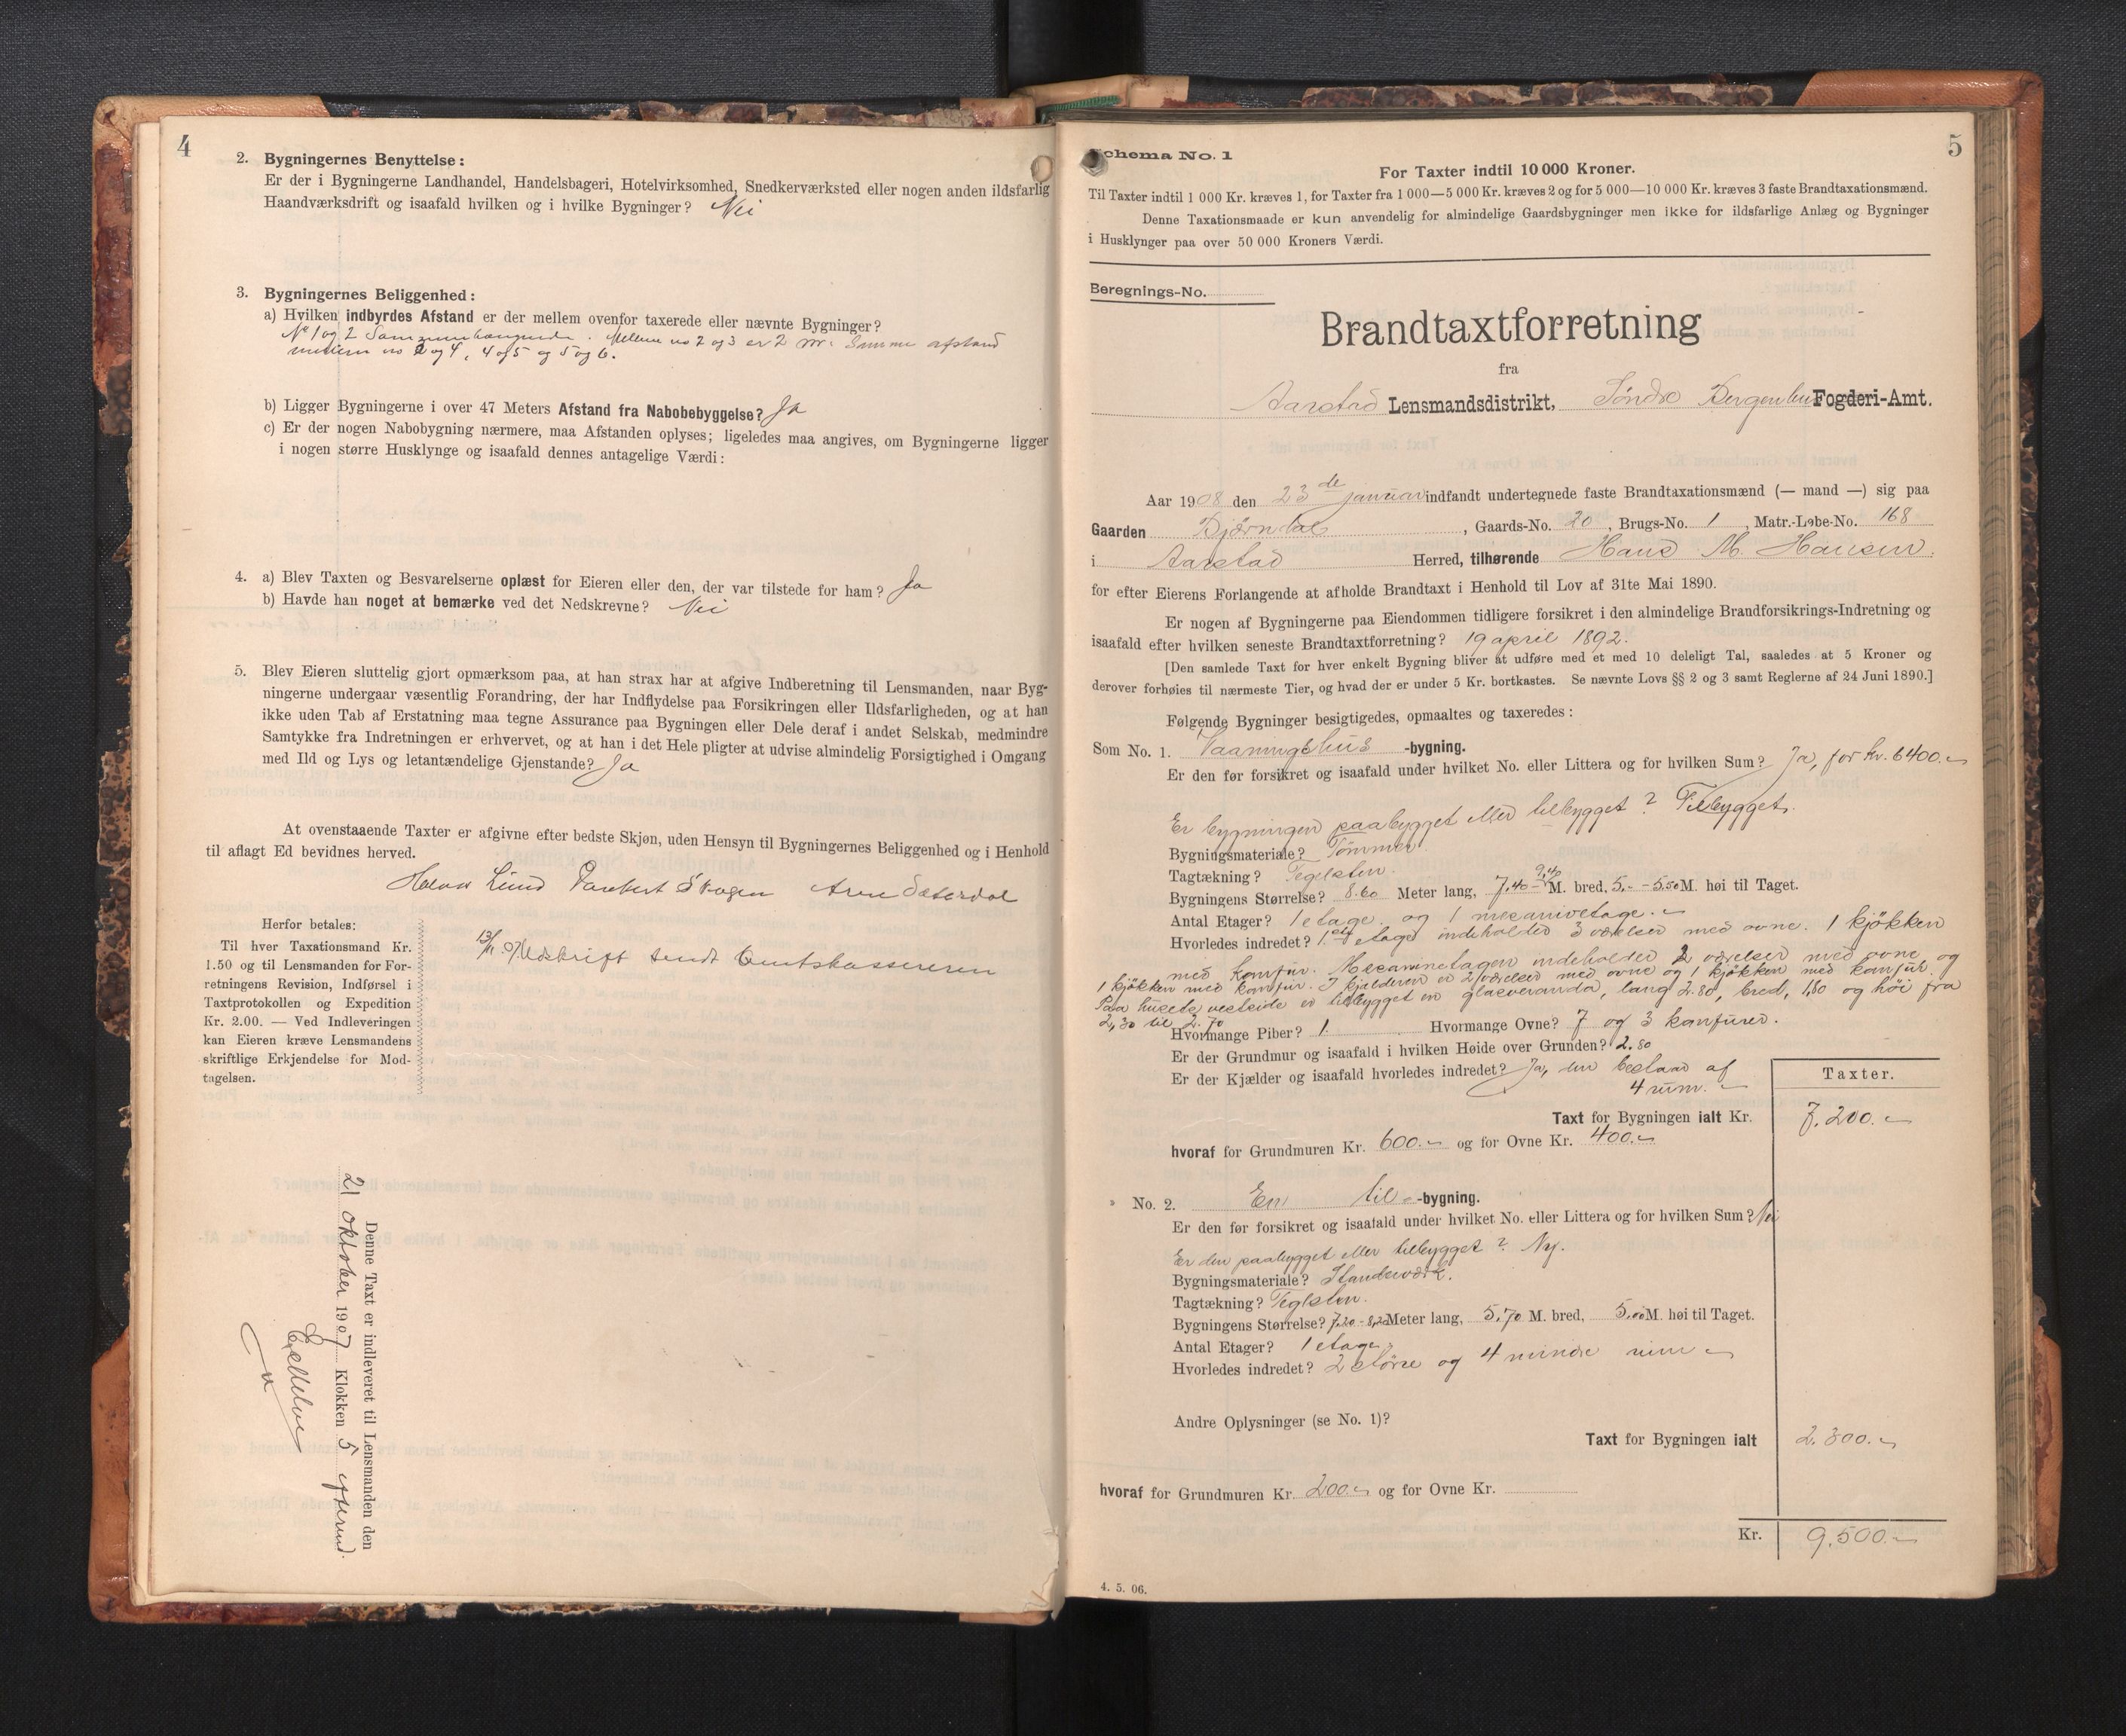 4
2. Bygningernes Benyttelse:
Er der i Bygningerne Landhandel, Handelsbageri, Hotelvirksomhed, Snedkerværksted eller nogen anden ildsfarlig
Haandværksdrift og isaafald hvilken og i hvilke Bygninger? Nei
3. Bygningernes Beliggenhed:
a) Hvilken indbyrdes Afstand er der mellem ovenfor taxerede eller nævnte Bygninger?
No 1 og 2 Sammenhængende. Mellem no 2 og 3 er 2 m. Samme afstand
mellem no 2 og 4, 4 og 5 og 5 og 6.
b) Ligger Bygningerne i over 47 Meters Afstand fra Nabobebyggelse? Ja
c) Er der nogen Nabobygning nærmere, maa Afstanden oplyses; ligeledes maa angives, om Bygningerne ligger
i nogen større Husklynge og isaafald dennes antagelige Værdi:
4. a) Blev Taxten og Besvarelserne oplæst for Eieren eller den, der var tilstede for ham? Ja
b) Havde han noget at bemærke ved det Nedskrevne? Nei
5. Blev Eieren sluttelig gjort opmærksom paa, at han strax har at afgive Indberetning til Lensmanden, naar Byg-
ningerne undergaar væsentlig Forandring, der har Indflydelse paa Forsikringen eller Ildsfarligheden, og at han
ikke uden Tab af Erstatning maa tegne Assurance paa Bygningen eller Dele deraf i andet Selskab, medmindre
Samtykke fra Indretningen er erhvervet, og at han i det Hele pligter at udvise almindelig Forsigtighed i Omgang
med Ild og Lys og letantændelige Gjenstande? Ja
At ovenstaaende Taxter er afgivne efter bedste Skjøn, uden Hensyn til Bygningernes Beliggenhed og i Henhold
til aflagt Ed bevidnes herved.
Lund Skagen Arne Sæterdal
Herfor betales:
Til hver Taxationsmand Kr.
1.50 og til Lensmanden for For-
retningens Revision, Indførsel i
Taxtprotokollen og Expedition
Kr. 2.00. — Ved Indleveringen
kan Eieren kræve Lensmandens
skriftlige Erkjendelse for Mod-
tagelsen.
13/11 07 Udskrift sendt Amtskassereren
Denne Taxt er indleveret til Lensmanden den
21 oktober 1907 Klokken 5 eftermd.
5
Schema No. 1
For Taxter indtil 10 000 Kroner.
Til Taxter indtil 1 000 Kr. kræves 1, for Taxter fra 1 000—5 000 Kr. kræves 2 og for 5 000—10 000 Kr. kræves 3 faste Brandtaxationsmænd.
Denne Taxationsmaade er kun anvendelig for almindelige Gaardsbygninger men ikke for ildsfarlige Anlæg og Bygninger
i Husklynger paa over 50 000 Kroners Værdi.
Beregnings-No.
Brandtaxtforretning
fra
Aarstad Lensmandsdistrikt, Søndre Bergenhus Fogderi-Amt.
Aar 1908 den 23de januar indfandt undertegnede faste Brandtaxationsmænd (— mand —) sig paa
Gaarden Bjørndal, Gaards-No. 20, Brugs-No. 1, Matr.-Løbe-No. 168
i Aarstad Herred, tilhørende Hans M. Hansen.
for efter Eierens Forlangende at afholde Brandtaxt i Henhold til Lov af 31te Mai 1890.
Er nogen af Bygningerne paa Eiendommen tidligere forsikret i den almindelige Brandforsikrings-Indretning og
isaafald efter hvilken seneste Brandtaxtforretning? 19 april 1892.
[Den samlede Taxt for hver enkelt Bygning bliver at udføre med et med 10 deleligt Tal, saaledes at 5 Kroner og
derover forhøies til nærmeste Tier, og hvad der er under 5 Kr. bortkastes. Se nævnte Lovs §§ 2 og 3 samt Reglerne af 24 Juni 1890.]
Følgende Bygninger besigtigedes, opmaaltes og taxeredes:
Som No. 1. Vaaningshus -bygning.
Er den før forsikret og isaafald under hvilket No. eller Littera og for hvilken Sum? Ja, for kr. 6400.-
Er bygningen paabygget eller tilbygget? Tilbygget.
Bygningsmateriale? Tømmer.
Tagtækning? Teglsten.
Bygningens Størrelse? 8.60 Meter lang, 7,40 - 9,40 M. bred, 5.- - 5.50 M. høi til Taget.
Antal Etager? 1 etage og 1 mezaninetage.
Hvorledes indredet? 1.ste etage indeholder 3 værelser med ovne. 1 kjøkken
med komfur. Mezaninetagen indeholder 2 værelser med ovne og
1 kjøkken med komfur. I kjelderen er 2 værelser med ovne og 1 kjøkken med komfur.
Paa husets vestside er tilbygget en glasveranda, lang 2.80, bred, 1,80 og høi fra
2,30 til 2.70
Hvormange Piber? 1. Hvormange Ovne? 7 og 3 komfurer.
Er der Grundmur og isaafald i hvilken Høide over Grunden? 2.80
Er der Kjælder og isaafald hvorledes indredet? Ja, den bestaar af
4 rum.
Taxter.
Taxt for Bygningen ialt Kr. 7.200.-
hvoraf for Grundmuren Kr. 600.- og for Ovne Kr. 400.-
No. 2. En til -bygning.
Er den før forsikret og isaafald under hvilket No. eller Littera og for hvilken Sum? Nei
Er den paabygget eller tilbygget? Ny.
Bygningsmateriale? Standerværk.
Tagtækning? Teglsten.
Bygningens Størrelse? 7.20 - 8,20 Meter lang, 5.70 M. bred, 5.00 M. høi til Taget.
Antal Etager? 1 etage.
Hvorledes indredet? 2 større og 4 mindre rum
Andre Oplysninger (se No. 1)?
Taxt for Bygningen ialt 2.300.-
hvoraf for Grundmuren Kr. 200.- og for Ovne Kr.
Kr. 9.500.-
4. 5. 06.